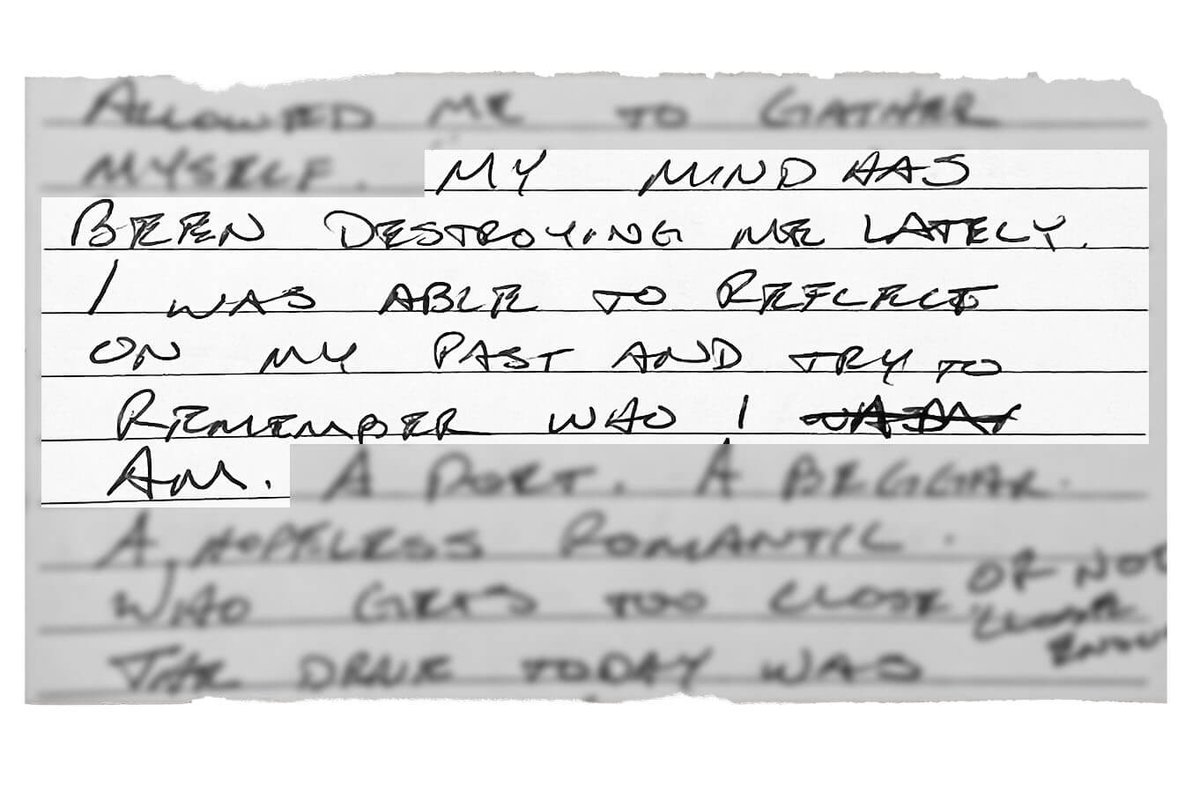 ALLOWED ME TO GATHER
MYSELF. MY MIND HAS
BEEN DESTROYING ME LATELY.
I WAS ABLE TO REFLECT
ON MY PAST AND TRY TO
REMEMBER WHO I
AM. A POET. A BEGGAR.
A HOPELESS ROMANTIC.
WHO GETS TOO CLOSE OR NOT
CLOSE
THE DRIVE TODAY WAS